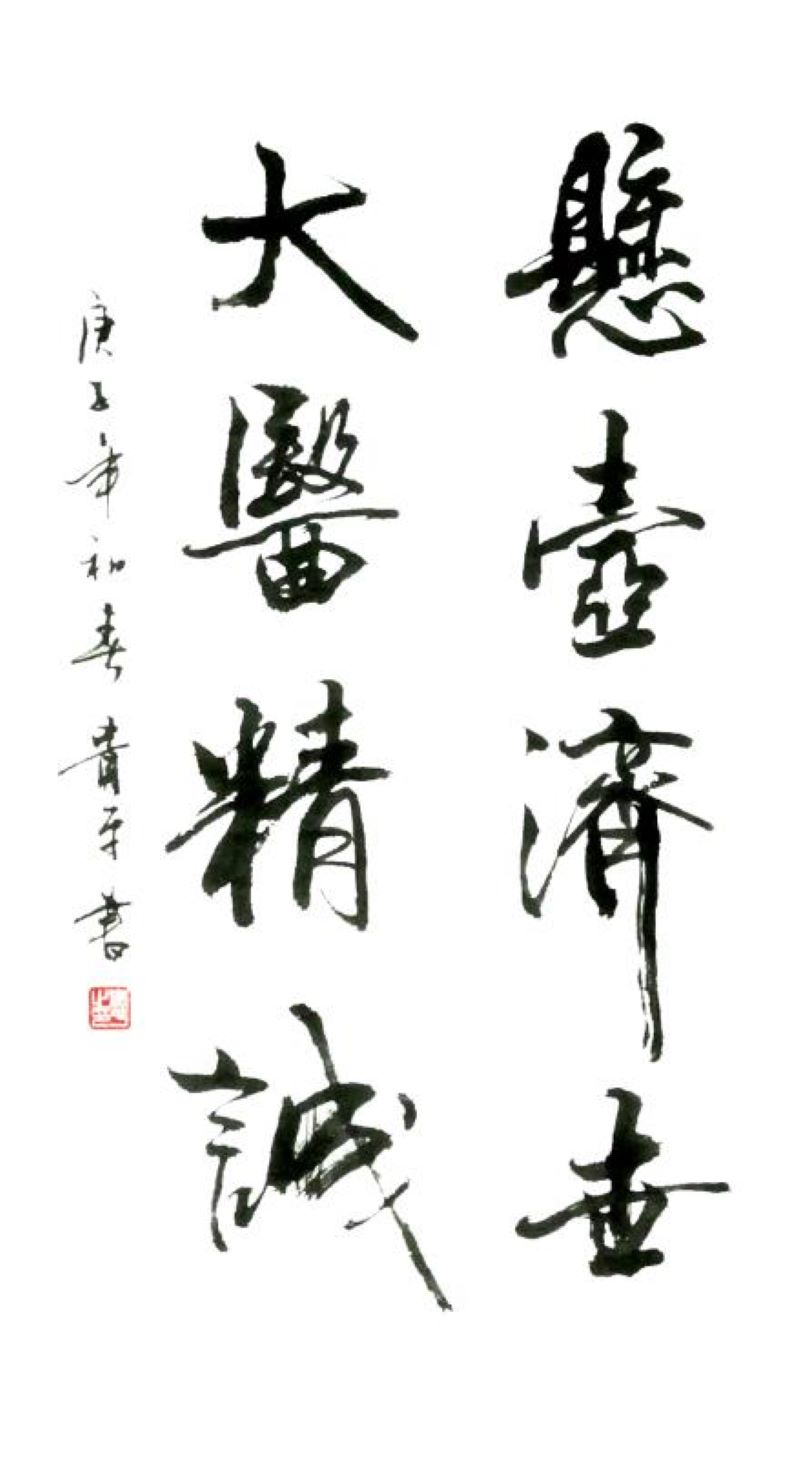 懸壺濟世
大醫精誠
庚子年初春貴平書